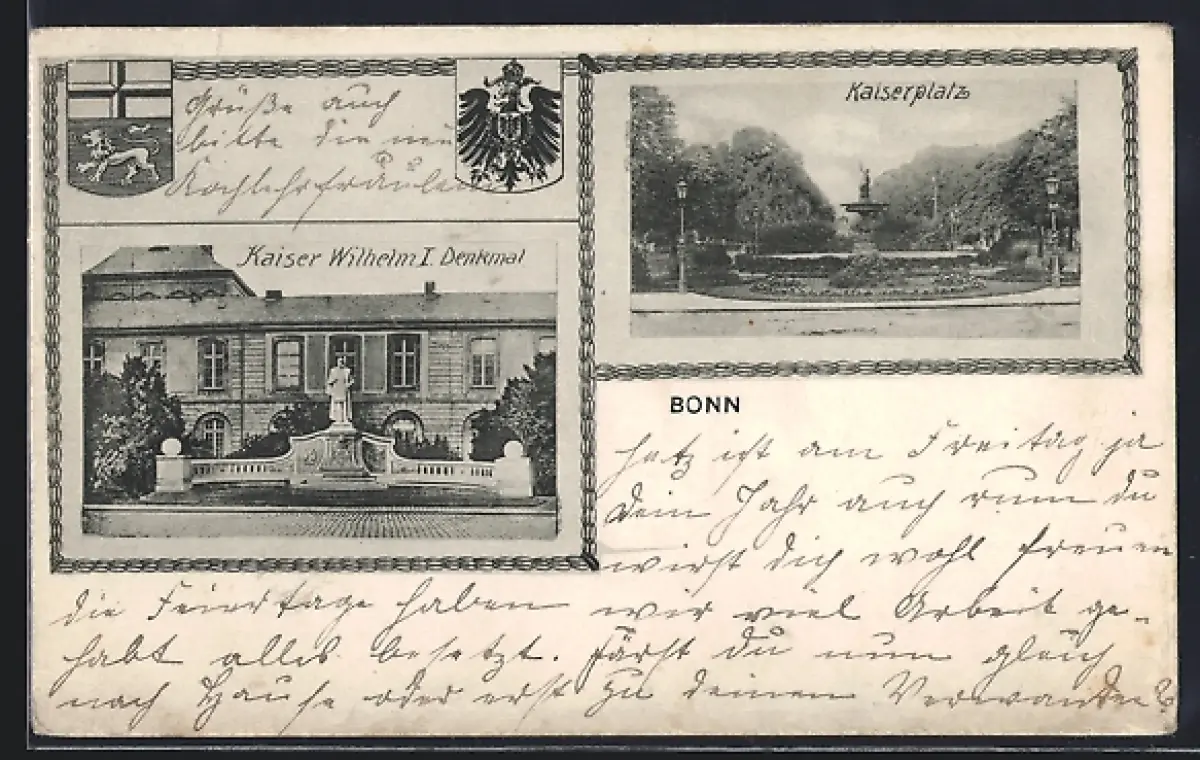 Grüße auch
bitte die neu
Kochlehrfräulein
Kaiserplatz
Kaiser Wilhelm I. Denkmal
BONN
jetz ist am Freitag ja
dein Jahr auch rum du
wirst dich wohl freuen
die Feiertage haben wir viel Arbeit ge-
habt alles besetzt. Färst du nun gleich
nach Hause oder erst zu deinen Verwanden?